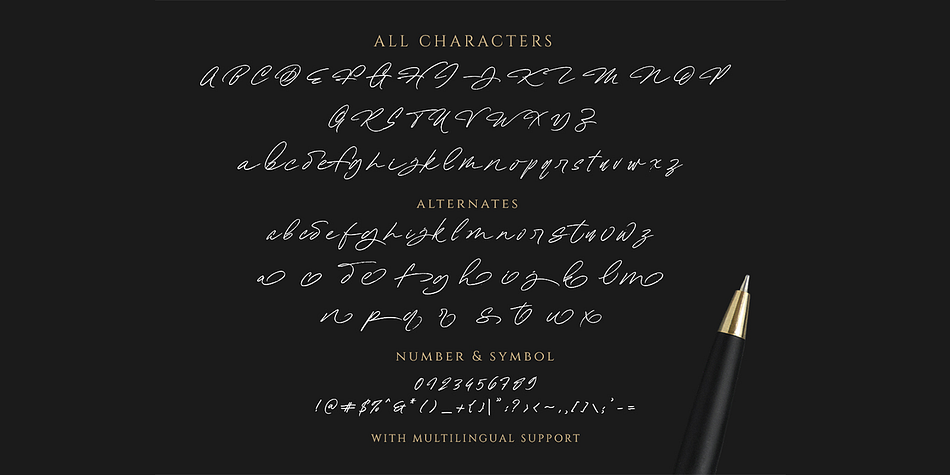 ALL CHARACTERS
A B C D E F G H I J K L M N O P
Q R S T U V W X Y Z
a b c d e f g h i j k l m n o p q r s t u v w x z
ALTERNATES
a b c d e f g h i j k l m n o r s t u v w z
a c d e f g h i j k l m
n p q r s t w x
NUMBER & SYMBOL
0123456789
!@#$%^&*()_+{}|":?><~,.[]\;'-=
WITH MULTILINGUAL SUPPORT